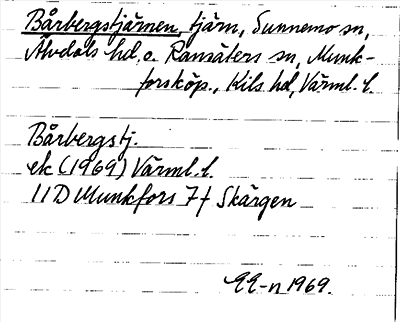 Bårbergstjärnen, tjärn, Sunnemo sn,
Älvdals hd, o. Ransäters sn, Munk-
forsköp., Kils hd, Värml. l.
Bårbergstj.
ek (1969) Värml. l.
11D Munkfors 7f Skärgen
-n 1969.